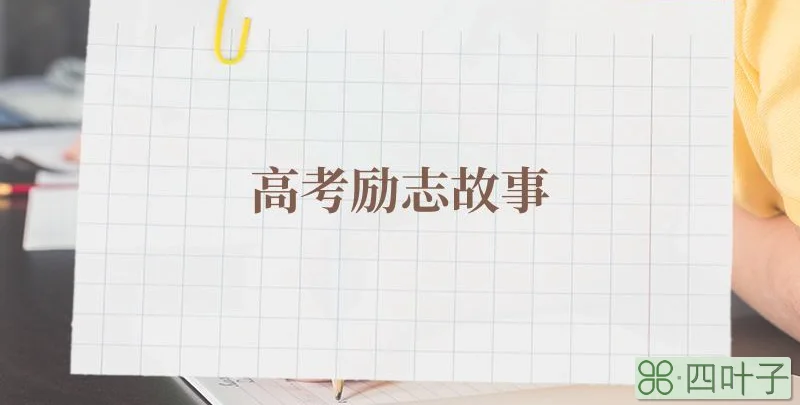 高考励志故事
四叶子